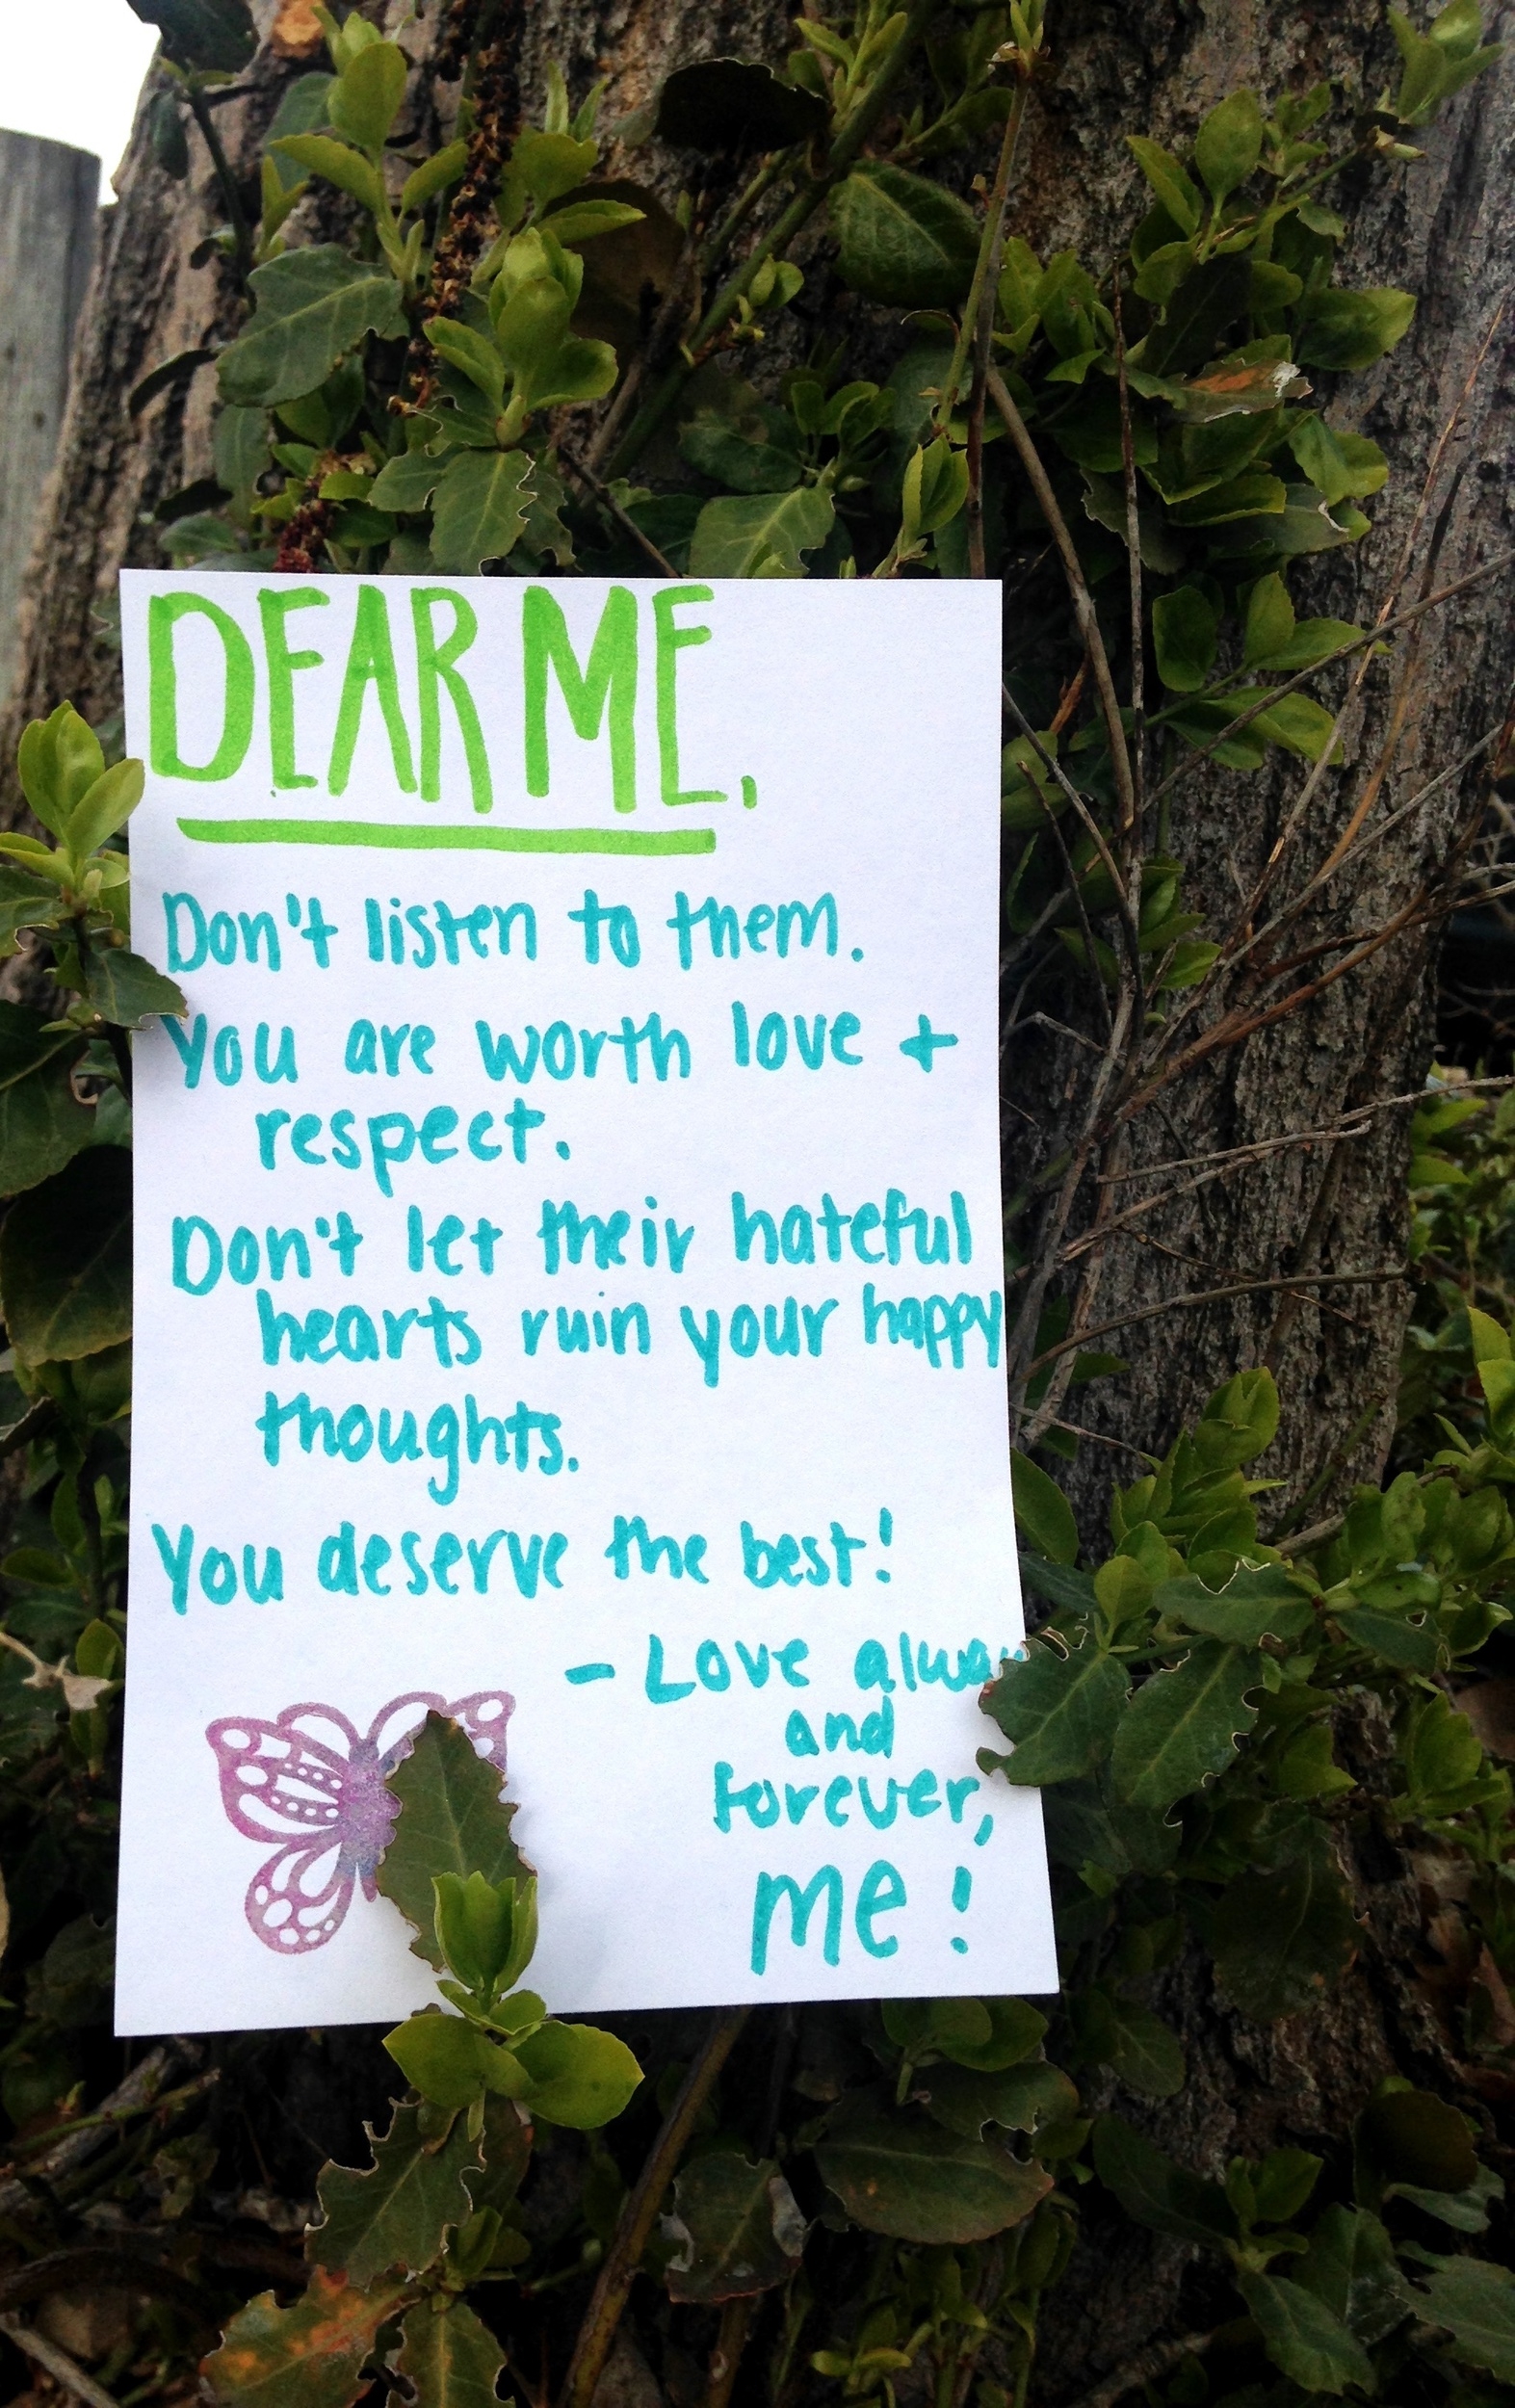 DEAR ME,
Don't listen to them.
You are worth love +
respect.
Don't let their hateful
hearts ruin your happy
thoughts.
You deserve the best!
- Love
and
forever,
me!